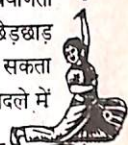 छेड़छाड़
सकता
दले में